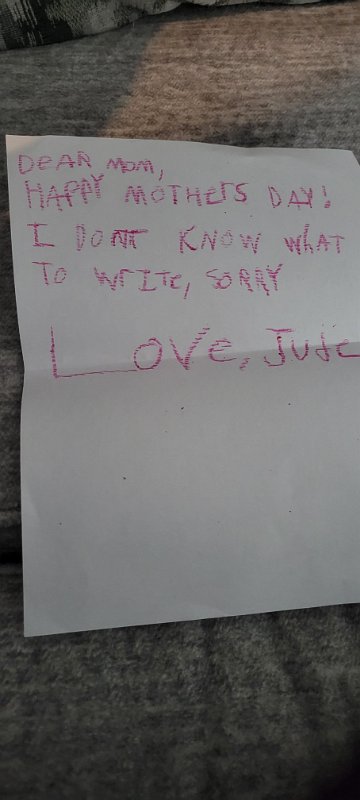 DeAR MOM,
HAPPY MOTHERS DAY!
I DONT KNOW WHAT
TO WRITE, SORRY
LOVe, JUde